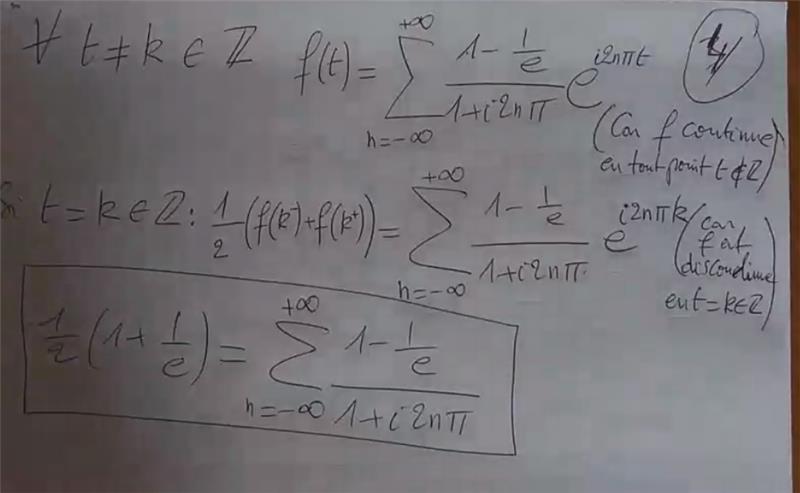 ∀ t ≠ k ∈ ℤ f(t) = ∑_{n=-∞}^{+∞} \frac{1 - \frac{1}{e}}{1 + i2nπ} e^{i2nπt}
(Car f continue
en tout point t ∉ ℤ)
Si t = k ∈ ℤ : \frac{1}{2} (f(k^-) + f(k^+)) = ∑_{n=-∞}^{+∞} \frac{1 - \frac{1}{e}}{1 + i2nπ} e^{i2nπk}
(car
f est
discontinue
en t = k ∈ ℤ)
\frac{1}{2} (1 + \frac{1}{e}) = ∑_{n=-∞}^{+∞} \frac{1 - \frac{1}{e}}{1 + i2nπ}